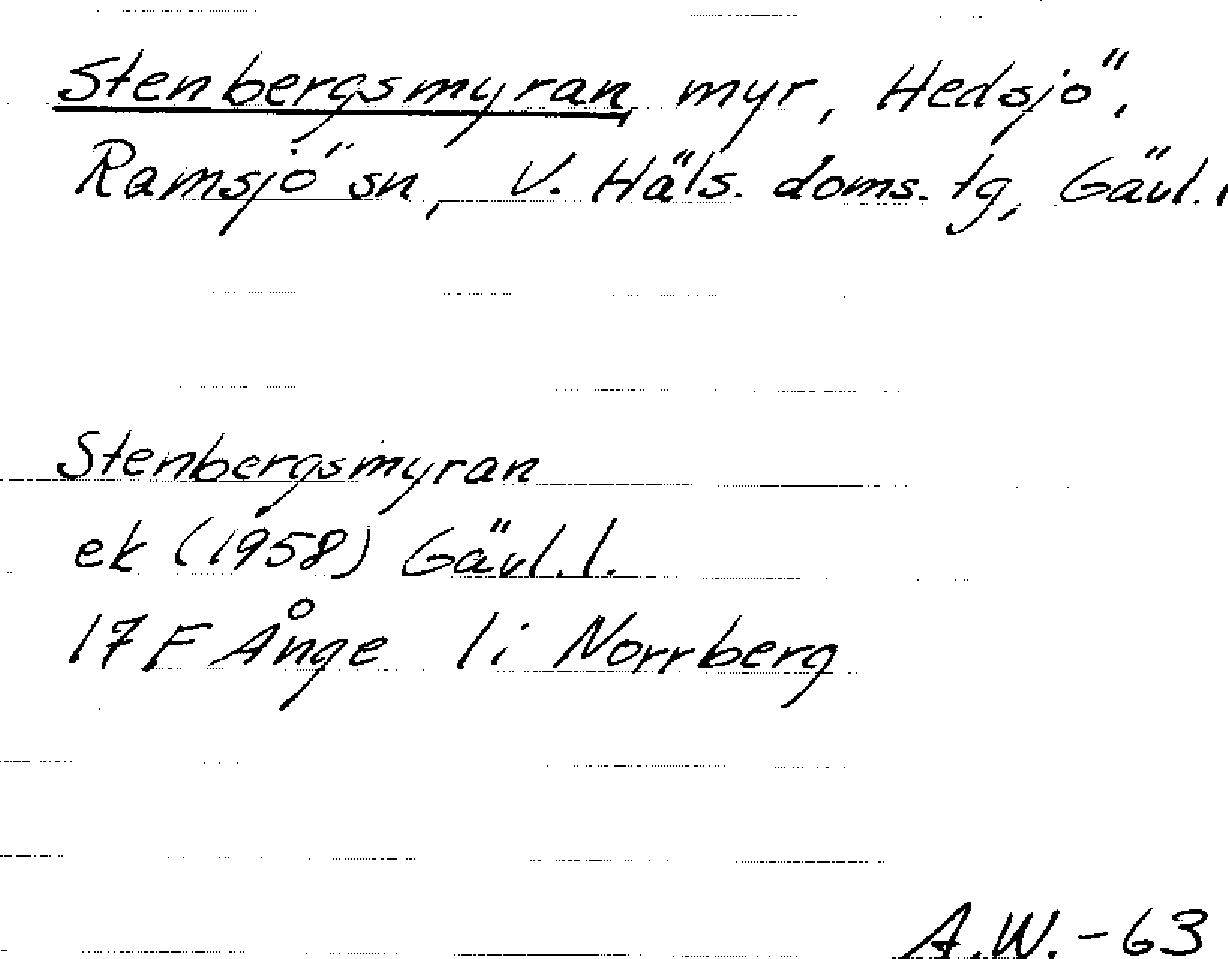 Stenbergsmyran, myr, Hedsjö,
Ramsjö sn, V. Häls. doms. tg, Gävl. l
Stenbergsmyran
ek (1958) Gävl. l.
17 F Ånge 1 i Norrberg
A.W.-63